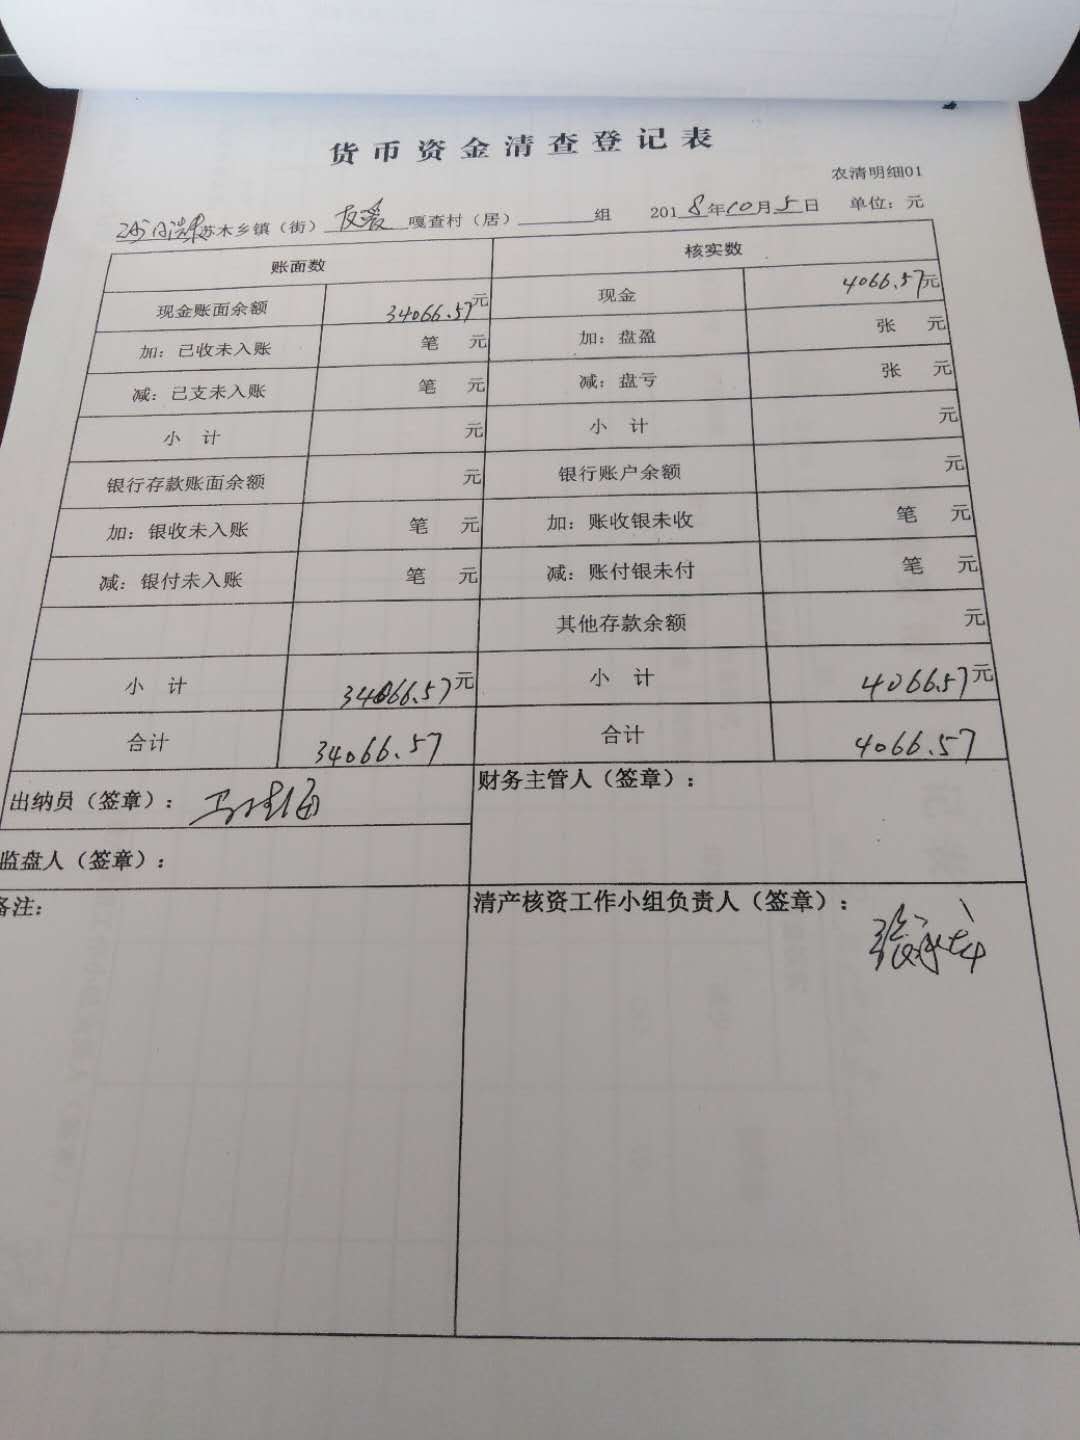 货币资金清查登记表
农清明细01
沙日浩来苏木乡镇（街） 友爱 嘎查村（居） 组 2018年10月5日 单位：元
账面数 核实数
现金账面余额 34066.57元 现金 4066.57元
加：已收未入账 笔 元 加：盘盈 张 元
减：已支未入账 笔 元 减：盘亏 张 元
小 计 元 小 计 元
银行存款账面余额 元 银行账户余额 元
加：银收未入账 笔 元 加：账收银未收 笔 元
减：银付未入账 笔 元 减：账付银未付 笔 元
其他存款余额 元
小 计 34066.57元 小 计 4066.57元
合计 34066.57 合计 4066.57
出纳员（签章）： 财务主管人（签章）：
监盘人（签章）：
备注： 清产核资工作小组负责人（签章）：